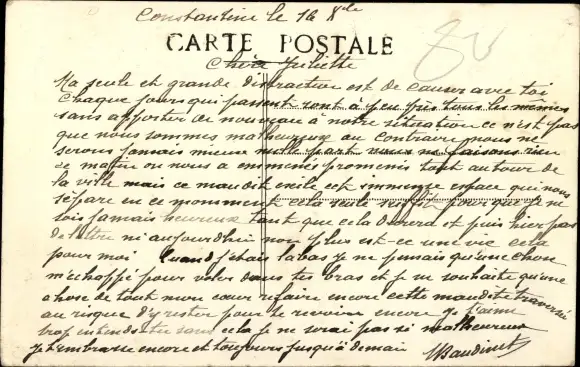 Constantine le 16 Xbre
CARTE POSTALE
Chère Juliette
Ma seule et grande distraction est de causer avec toi
Chaque jours qui passent sont à peu près tous les mêmes
sans apporter de nouveau à notre situation ce n'est pas
que nous sommes malheureux au contraire nous ne
serons jamais mieux nulle part nous ne faisons rien
ce matin on nous a emmenés promenés tout autour de
la ville mais ce maudit exile cet immense espace qui nous
sépare en ce momment cela seule suffit pour que je ne
sois jamais heureux tant que cela durera et puis hier pas
de lettre ni aujourdhui non plus est-ce une vie cela
pour moi Quand j'étais labas je ne pensais qu'une chose
m'echappé pour voler dans tes bras et je ne souhaite qu'une
chose de tout mon cœur refaire encore cette maudite traversé
au risque d'y rester pour te revoire encore je t'aime
trop entends tu sans cela je ne serai pas si malheureux
Je t'embrasse encore et toujours jusqu'à demain Baudinet